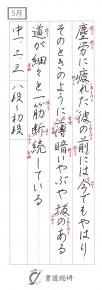 5月
塵労に疲れた彼の前には今でもやはり
そのときのように薄暗いやぶや坂のある
道が細々と一筋断続している
中一、二、三 八段〜初段
書道総研